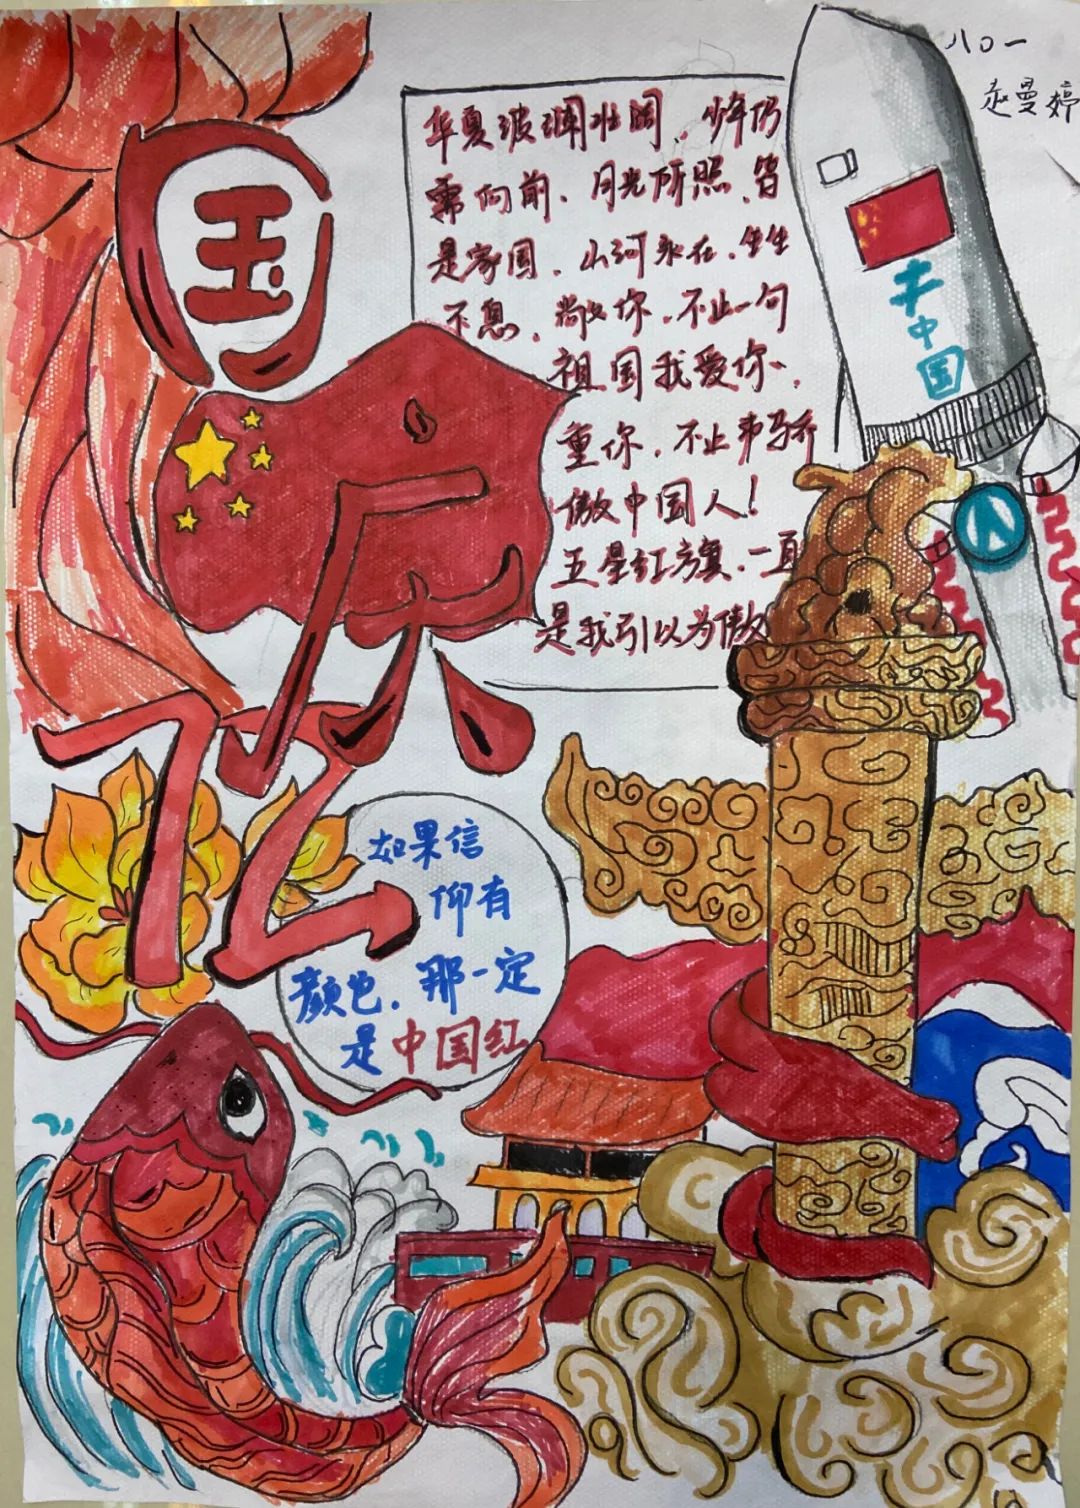 八〇一
赵曼婷
国
庆
72
华夏波澜壮阔，少年仍
需向前．月光所照，皆
是家国．山河永在，生生
不息．敬你，不止一句
祖国我爱你，
重你，不止弗骄
傲中国人！
五星红旗．一直
是我引以为傲
中国
如果信
仰有
颜色．那一定
是中国红